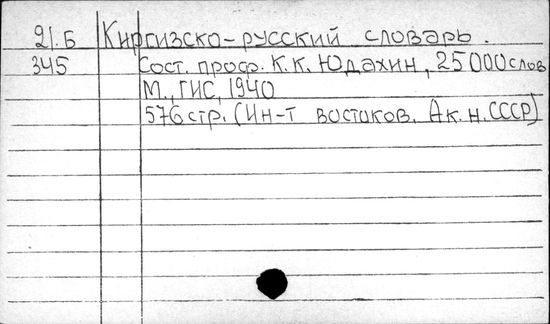 21.Б Киргизско-русский словарь.
345 Сост. проф. К.К. Юдахин, 25000 слов
М., ГИС, 1940
576 стр. (Ин-т востоков. Ак.н.СССР)